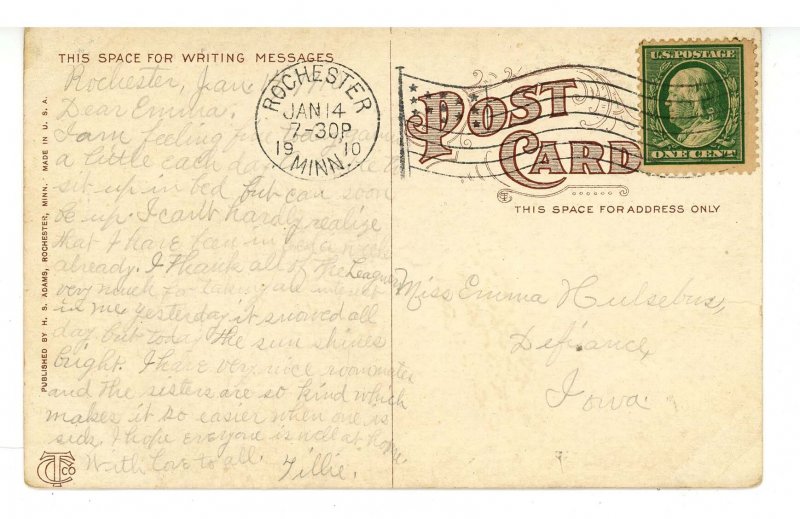 THIS SPACE FOR WRITING MESSAGES
Rochester, Jan.
Dear Emma:
I am feeling
a little each day
sit up in bed but can soon
be up. I can't hardly realize
that I have been in bed a week
already. I thank all of the Leaguers
very much for taking an interest
in me yesterday it snowed all
day, but today the sun shines
bright. I have very nice roommates
and the sisters are so kind which
makes it so easier when one is
sick. I hope everyone is well at home.
With love to all. Tillie.
PUBLISHED BY H. S. ADAMS, ROCHESTER, MINN. MADE IN U. S. A.
ROCHESTER
JAN 14
7-30P
19 10
MINN.
POST
CARD
THIS SPACE FOR ADDRESS ONLY
U.S. POSTAGE
ONE CENT
Miss Emma Hulsebus,
Defiance,
Iowa.